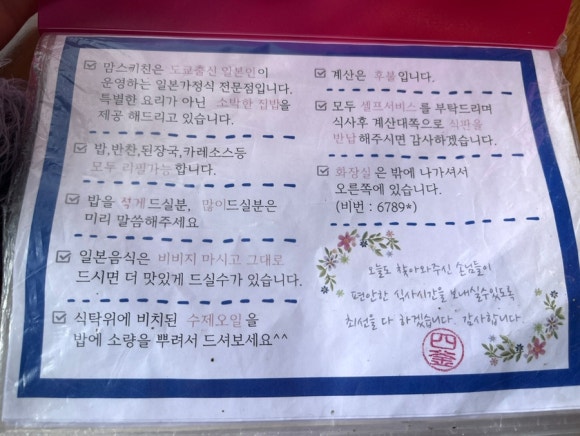 맘스키친은 도쿄출신 일본인이
운영하는 일본가정식 전문점입니다.
특별한 요리가 아닌 소박한 집밥을
제공 해드리고 있습니다.
밥,반찬,된장국,카레소스등
모두 리필가능합니다.
밥을 적게드실분, 많이드실분은
미리 말씀해주세요
일본음식은 비비지 마시고 그대로
드시면 더 맛있게 드실수가 있습니다.
식탁위에 비치된 수제오일을
밥에 소량을 뿌려서 드셔보세요^^
계산은 후불입니다.
모두 셀프서비스를 부탁드리며
식사후 계산대쪽으로 식판을
반납해주시면 감사하겠습니다.
화장실은 밖에 나가셔서
오른쪽에 있습니다.
(비번 : 6789*)
오늘도 찾아와주신 손님들이
편안한 식사시간을 보내실수있도록
최선을 다 하겠습니다. 감사합니다.
四釜